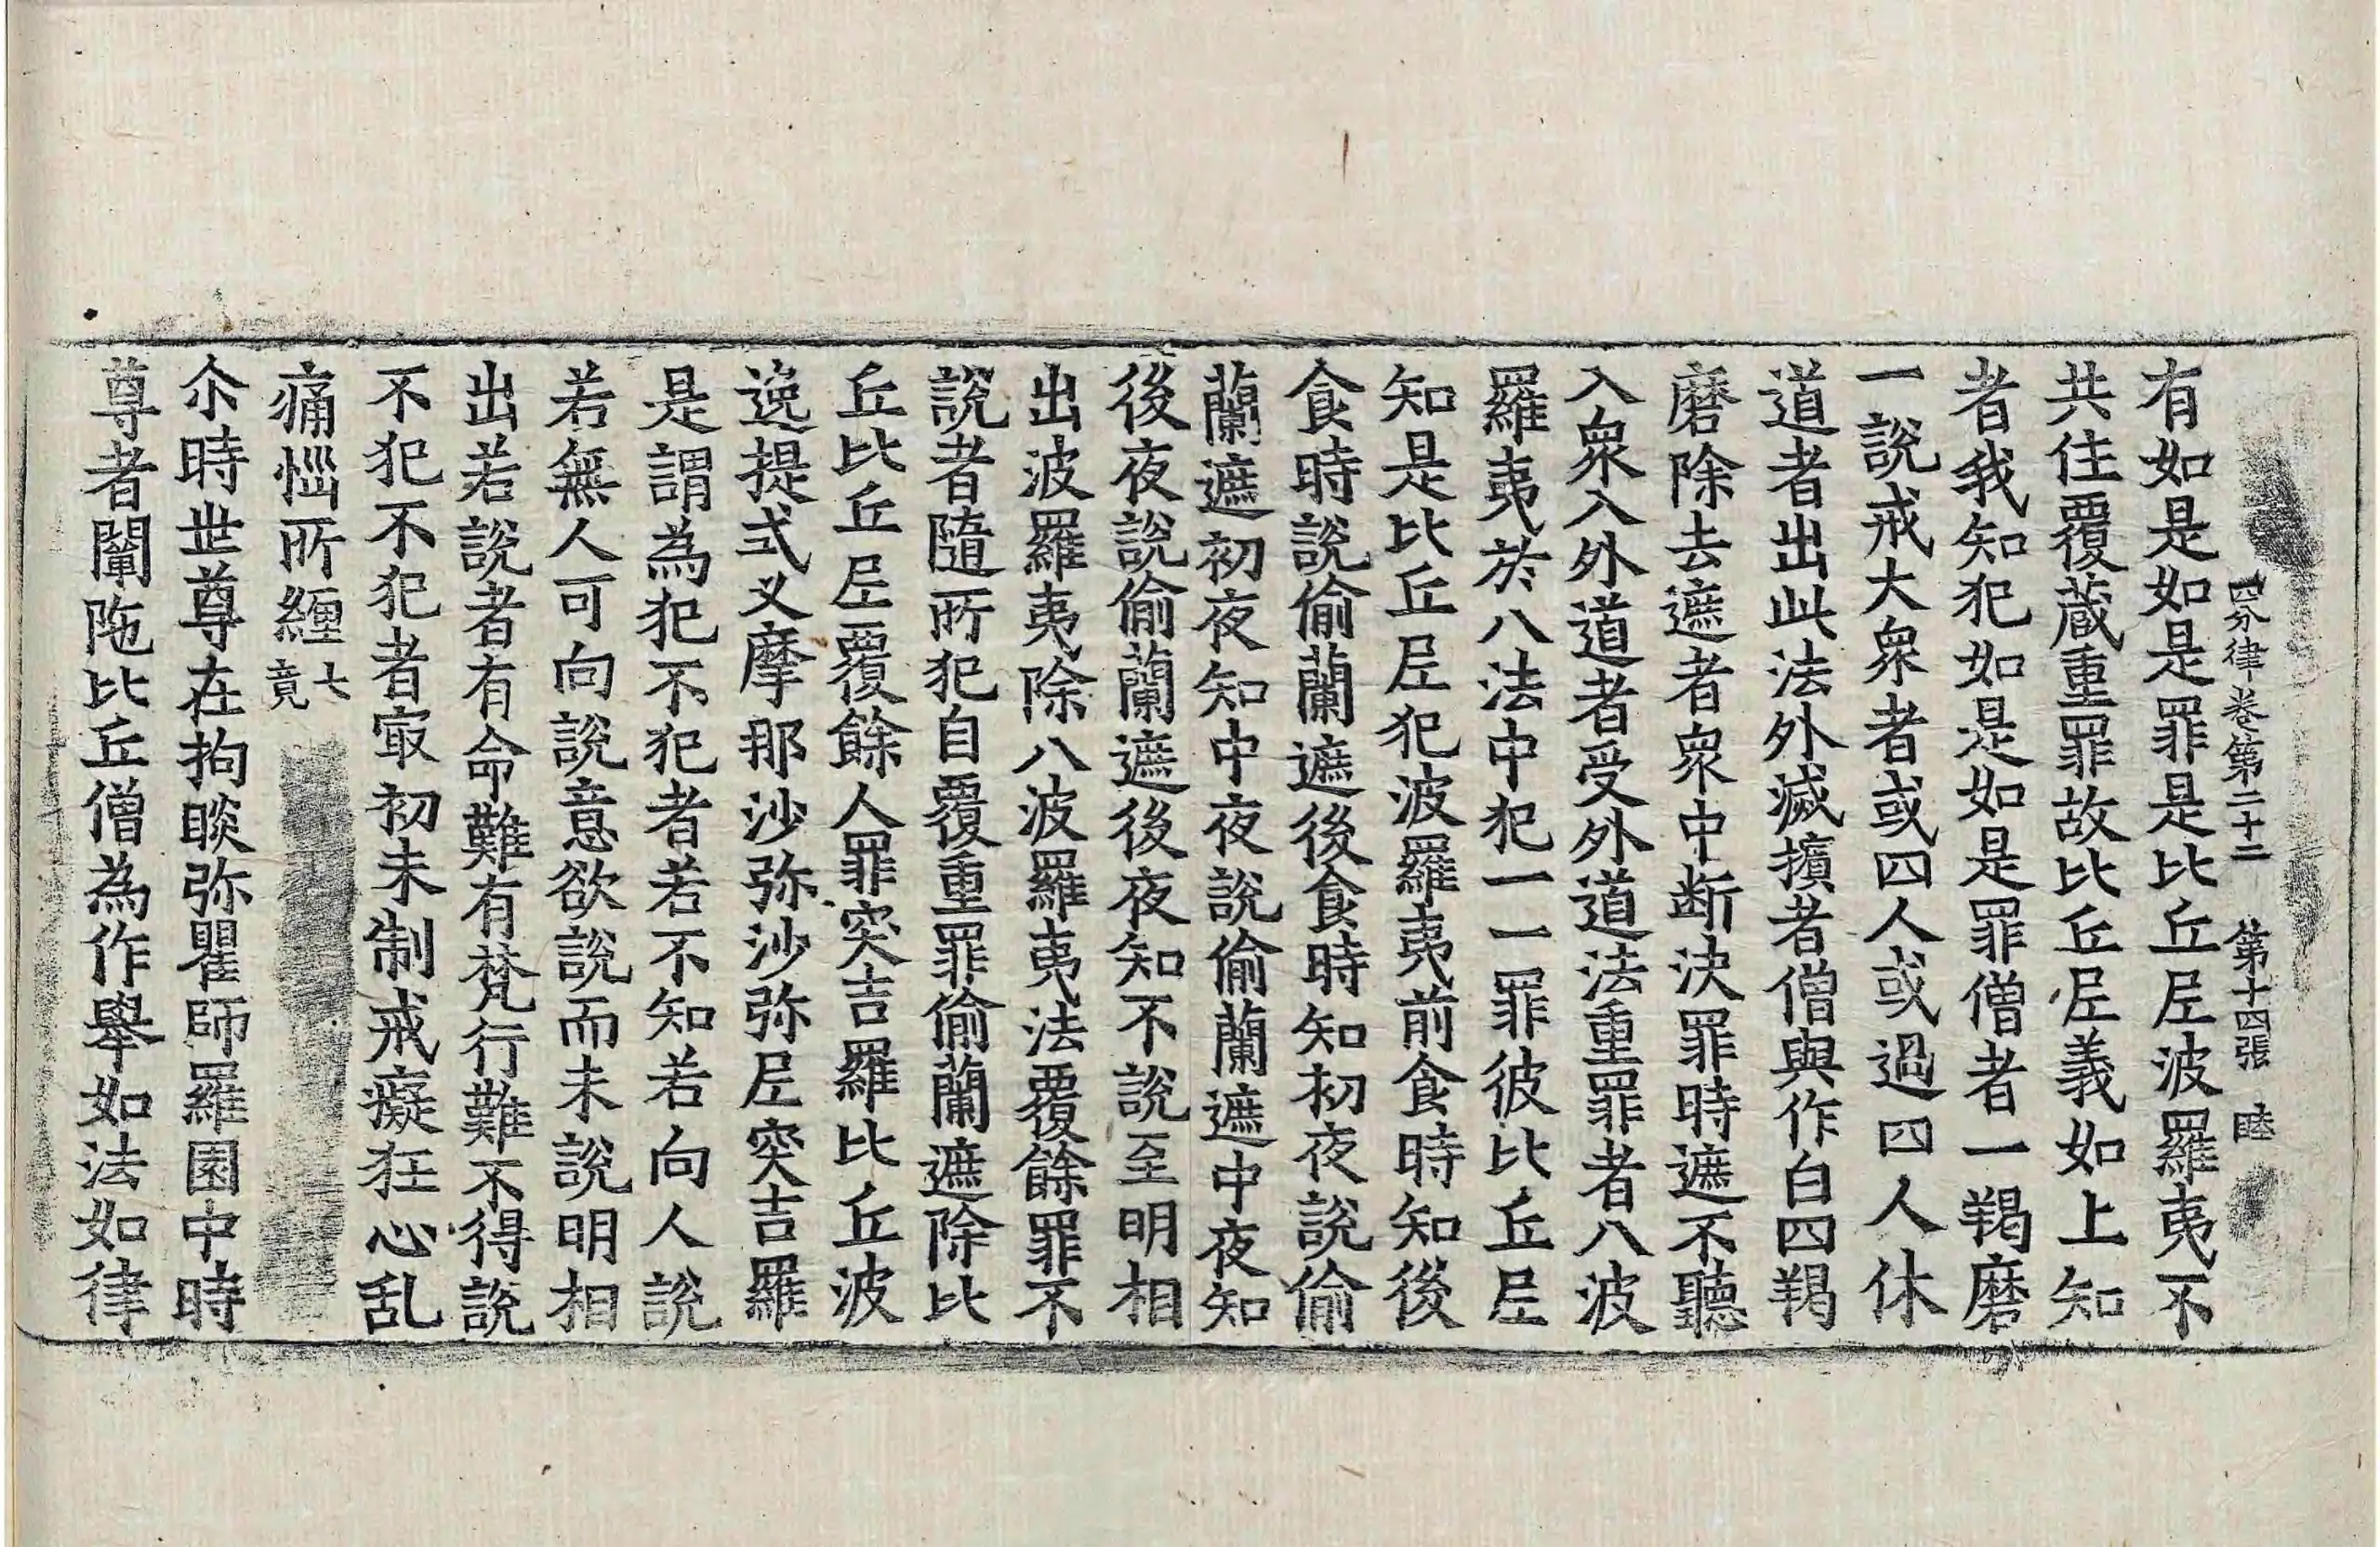 四分律卷第二十二 第十四張 睦
有如是如是罪是比丘𡰱波羅夷不
共住覆蔵重罪故比丘𡰱義如上知
者我知犯如是如是罪僧者一羯磨
一說戒大衆者或四人或過四人休
道者出此法外滅擯者僧與作白四羯
磨除去遮者衆中断決罪時遮不聽
入衆入外道者受外道法重罪者八波
羅夷於八法中犯一一罪彼比丘𡰱
知是比丘𡰱犯波羅夷前食時知後
食時說偷蘭遮後食時知初夜說偷
蘭遮初夜知中夜說偷蘭遮中夜知
後夜說偷蘭遮後夜知不說至明相
出波羅夷除八波羅夷法覆餘罪不
說者隨所犯自覆重罪偷蘭遮除比
丘比丘𡰱覆餘人罪突吉羅比丘波
逸提式叉摩那沙弥沙弥𡰱突吉羅
是謂為犯不犯者若不知若向人說
若無人可向說意欲說而未說明相
出若說者有命難有梵行難不得說
不犯不犯者㝡初未制戒癡狂心乱
痛惱所纏七竟
尒時世尊在拘睒弥瞿師羅園中時
尊者闡陁比丘僧為作舉如法如律